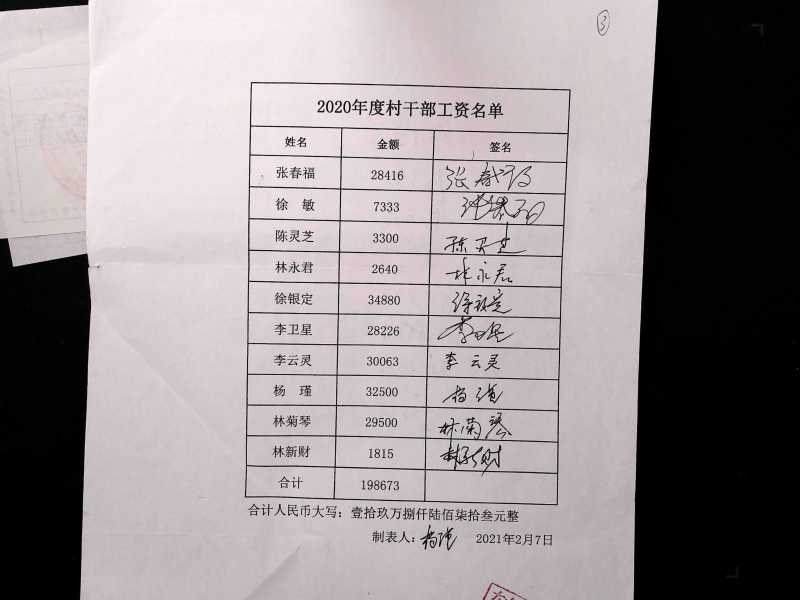 ③
2020年度村干部工资名单
姓名 金额 签名
张春福 28416 张春福
徐 敏 7333
陈灵芝 3300 陈灵芝
林永君 2640 林永君
徐银定 34880 徐银定
李卫星 28226 李卫星
李云灵 30063 李云灵
杨 瑾 32500 杨瑾
林菊琴 29500 林菊琴
林新财 1815 林新财
合计 198673
合计人民币大写：壹拾玖万捌仟陆佰柒拾叁元整
制表人：杨瑾 2021年2月7日